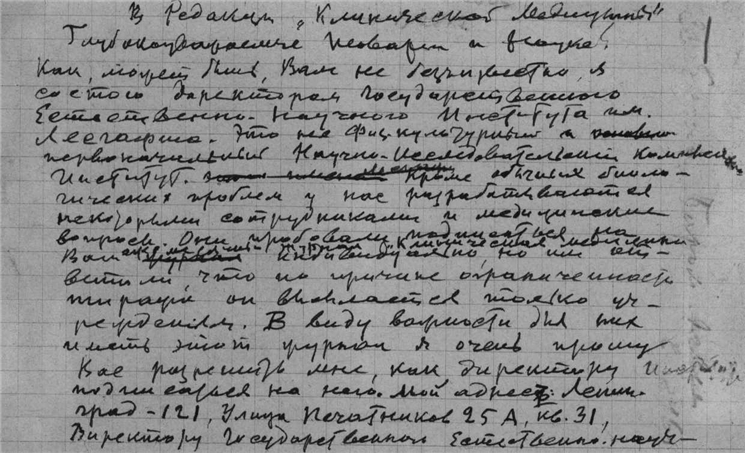 В Редакцию „Клинической Медицины"
Глубокоуважаемые товарищи по науке!
Как, может быть, Вам не безизвестно, я
состою директором Государственного
Естественно-Научного Института им.
Лесгафта. Это не физкультурный а
первоначальный Научно-Исследовательский
Институт. Кроме обычных биоло-
гических проблем у нас разрабатываются
некоторыми сотрудниками и медицинские
вопросы. Они пробовали подписаться на
Ваш журнал „Клиническая медицина индивидуально, но им от-
ветили, что по причине ограниченности
тиража он высылается только уч-
реждениям. В виду важности для них
иметь этот журнал я очень прошу
Вас разрешить мне, как директору
подписаться на него. Мой адрес: Ленин-
град-121, Улица Печатников 25 А, кв. 31,
Директору Государственного Естественно-науч-